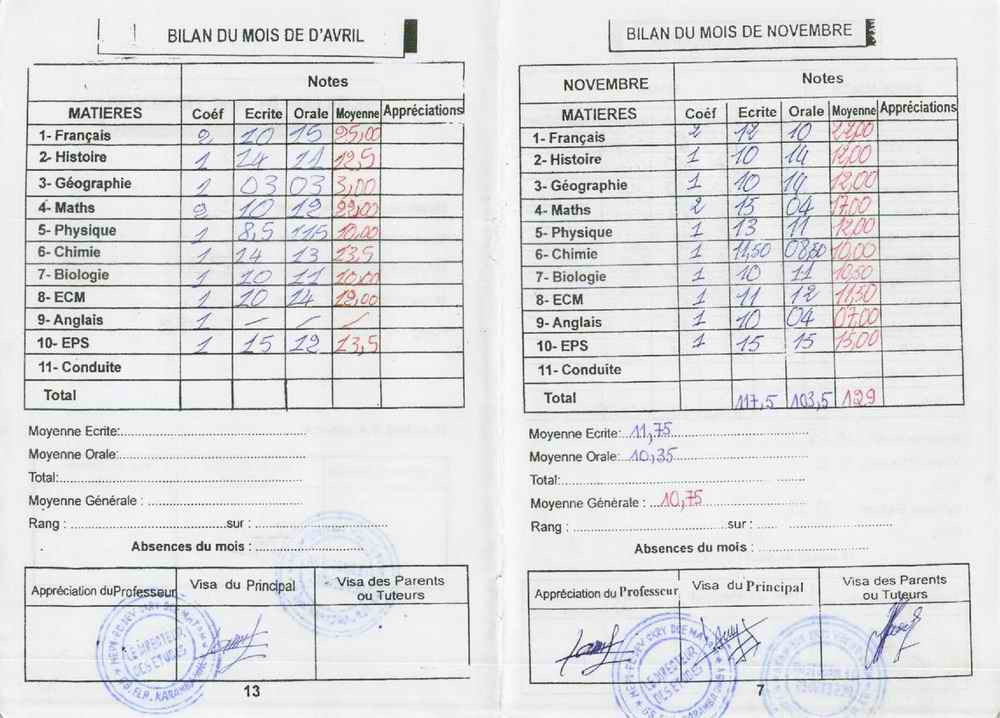 BILAN DU MOIS DE D'AVRIL
Notes
MATIERES Coéf Ecrite Orale Moyenne Appréciations
1- Français 2 10 15 25,00
2- Histoire 1 14 11 12,5
3- Géographie 1 03 03 3,00
4- Maths 2 10 12 22,00
5- Physique 1 8,5 11,5 10,00
6- Chimie 1 14 13 13,5
7- Biologie 1 10 11 10,00
8- ECM 1 10 14 12,00
9- Anglais 1 - - -
10- EPS 1 15 12 13,5
11- Conduite
Total
Moyenne Ecrite:
Moyenne Orale:
Total:
Moyenne Générale :
Rang : sur :
Absences du mois :
Appréciation du Professeur Visa du Principal Visa des Parents ou Tuteurs
LE DIRECTEUR
DES ETUDES
13
BILAN DU MOIS DE NOVEMBRE
NOVEMBRE Notes
MATIERES Coéf Ecrite Orale Moyenne Appréciations
1- Français 2 12 10 22,00
2- Histoire 1 10 14 12,00
3- Géographie 1 10 14 12,00
4- Maths 2 15 04 17,00
5- Physique 1 13 11 12,00
6- Chimie 1 11,50 08,50 10,00
7- Biologie 1 10 11 10,50
8- ECM 1 11 12 11,50
9- Anglais 1 10 04 07,00
10- EPS 1 15 15 15,00
11- Conduite
Total 117,5 103,5 129
Moyenne Ecrite: 11,75
Moyenne Orale: 10,35
Total:
Moyenne Générale : 10,75
Rang : sur :
Absences du mois :
Appréciation du Professeur Visa du Principal Visa des Parents ou Tuteurs
LE DIRECTEUR
DES ETUDES
7